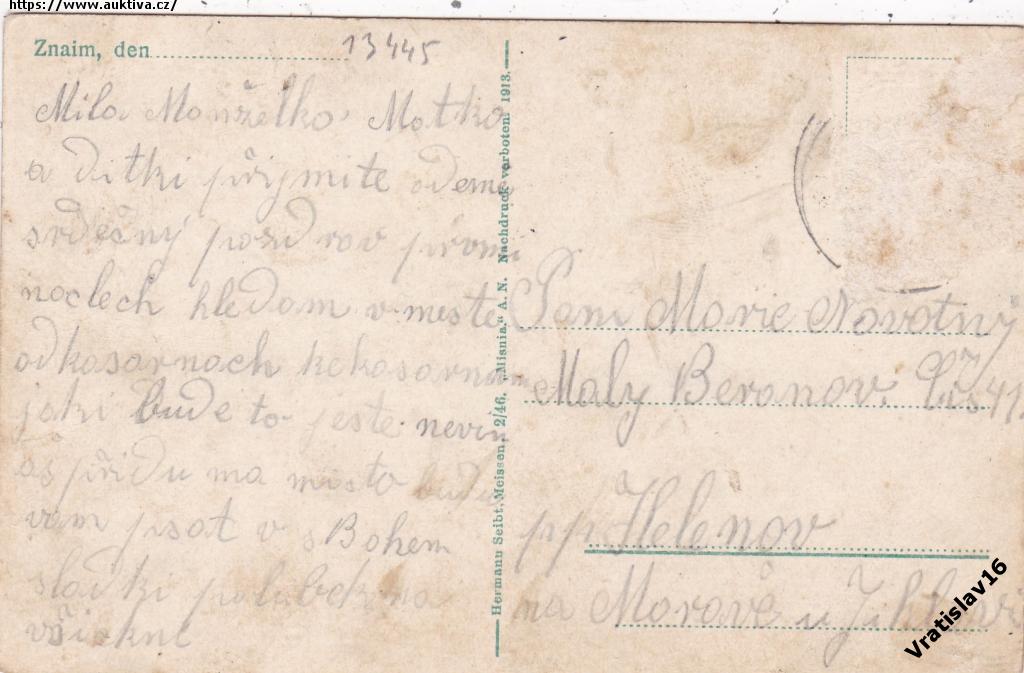 https://www.auktiva.cz/
Znaim, den
13445
Mila Manželko, Matko
a ditki přijmite odemě
srdečný pozdrav prvni
noclech hledam v meste
od kasarnach k kasarnam
jaki bude to jeste nevim
as přidu na misto budu
vam psat v s Bohem
sladki polibek na
všickne
Hermann Seibt, Meissen. 2/46. „Misnia.“ A. N. Nachdruck verboten! 1913.
Pani Marie Novotny
Maly Beranov. Čis 41
pp Helenov
na Moravě u Jihlavi
Vratislav16